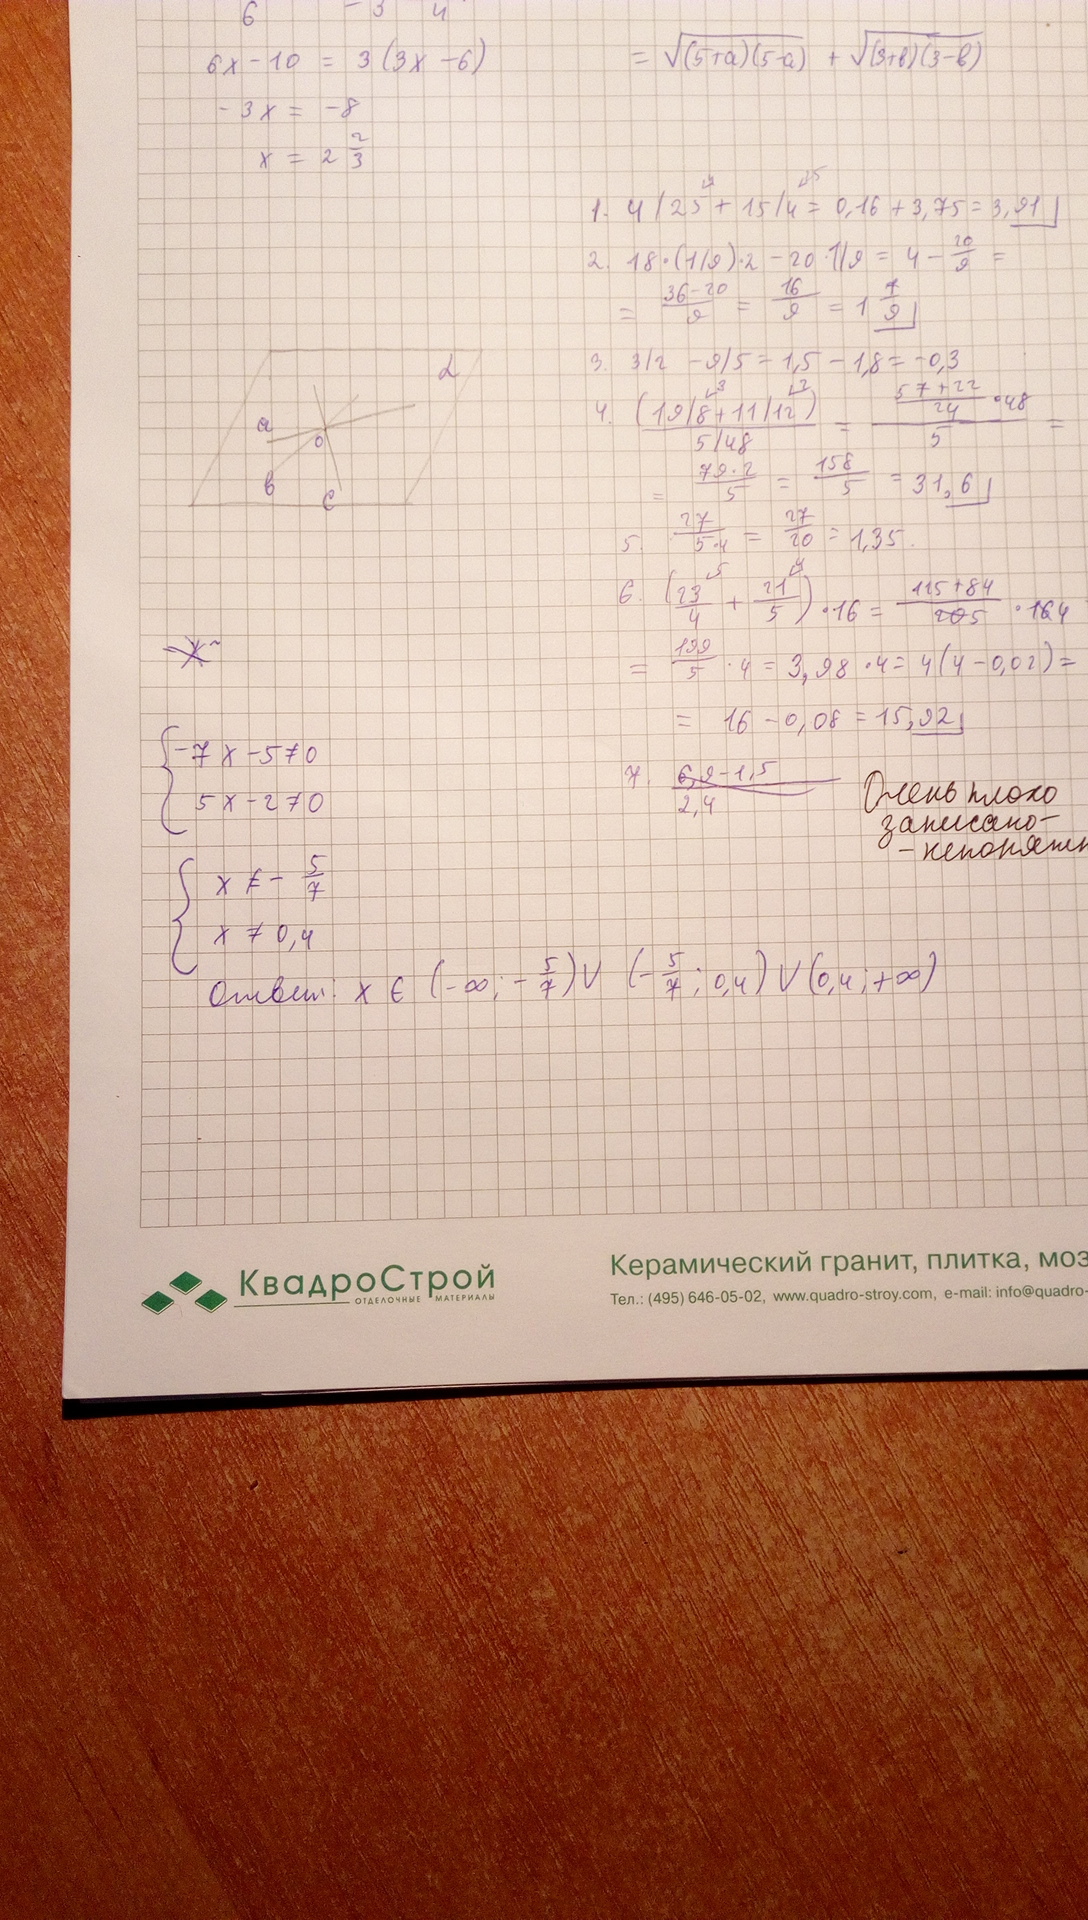 6 3 4
6x - 10 = 3(3x - 6)
-3x = -8
x = 2 2/3
= √(5+a)(5-a) + √(3+b)(3-b)
1. 4/25 + 15/4 = 0,16 + 3,75 = 3,91
2. 18·(1/9)·2 - 20·1/9 = 4 - 20/9 =
= 36-20/9 = 16/9 = 1 7/9
3. 3/2 - 9/5 = 1,5 - 1,8 = -0,3
4. (19/8 + 11/12)/(5/48) = ((57+22)/24 · 48)/5 =
= 79·2/5 = 158/5 = 31,6
5. 27/5·4 = 27/20 = 1,35.
6. (23/4 + 21/5) · 16 = 115+84/205 · 164
= 199/5 · 4 = 3,98 · 4 = 4(4 - 0,02) =
= 16 - 0,08 = 15,92
7. 6,9 - 1,5
2,4
Очень плохо
записано-
- непонятн
α
a
o
b
c
x
{ -7x - 5 ≠ 0
5x - 2 ≠ 0
{ x ≠ - 5/7
x ≠ 0,4
Ответ: x ∈ (-∞; - 5/7) ∪ (- 5/7; 0,4) ∪ (0,4; +∞)
КвадроСтрой
ОТДЕЛОЧНЫЕ МАТЕРИАЛЫ
Керамический гранит, плитка, моз
Тел.: (495) 646-05-02, www.quadro-stroy.com, e-mail: info@quadro-